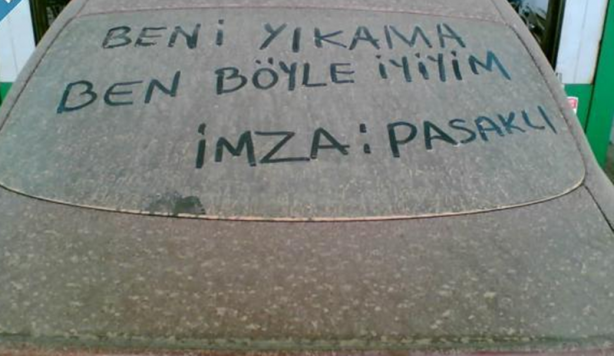 BENİ YIKAMA
BEN BÖYLE İYİYİM
İMZA: PASAKLI